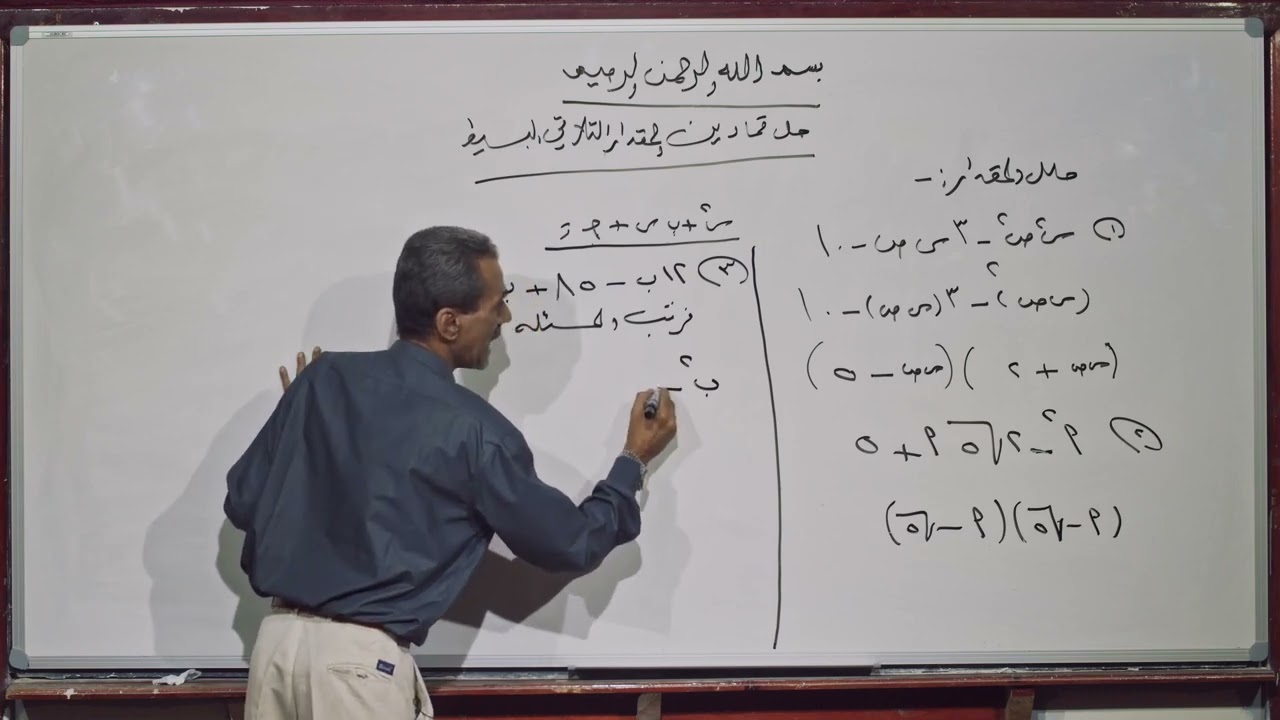 بسم الله الرحمن الرحيم
حل تمارين المقدار الثلاثي البسيط
حلل المقدار :-
① س٢ص٢ - ٣ س ص - ١٠
(س ص)٢ - ٣(س ص) - ١٠
(س ص + ٢)(س ص - ٥)
② م٢ - ٢√٥ م + ٥
(م - √٥)(م - √٥)
س٢ + ب س + جـ
③ ١٢ب - ٨٥ + ب
نرتب المسئله
ب٢ -